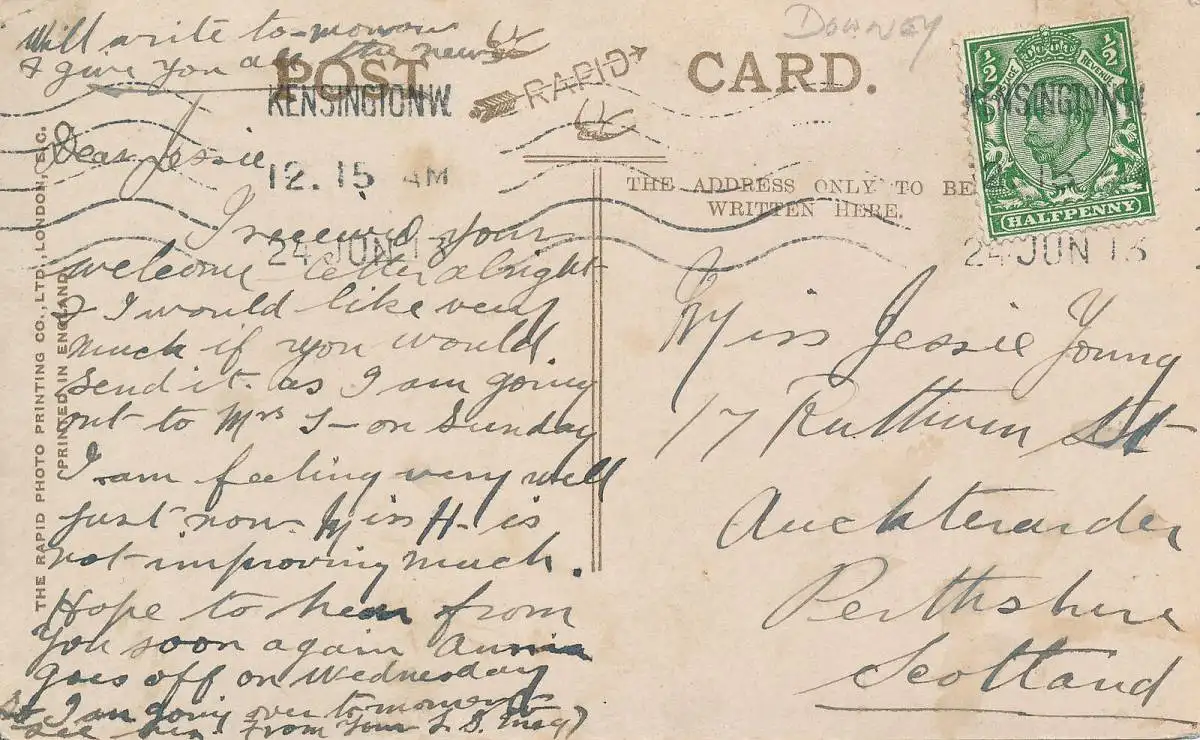 Will write to-morrow
& give you all the news
Downey
POST CARD.
RAPID
KENSINGTON.W.
12.15 AM
24 JUN 13
KENSINGTON.W.
24 JUN 13
½ ½
POSTAGE REVENUE
HALFPENNY
THE RAPID PHOTO PRINTING CO., LTD., LONDON, E.C.
(PRINTED IN ENGLAND)
Dear Jessie
I received your
welcome letter alright
& I would like very
much if you would
send it as I am going
out to Mrs S- on Sunday
I am feeling very well
just now. Miss H- is
not improving much.
Hope to hear from
you soon again Annie
goes off on Wednesday
So I am going over to-morrow to
see her. From Your
THE ADDRESS ONLY TO BE
WRITTEN HERE.
Miss Jessie Young
17 Ruthven St
Auchterarder
Perthshire
Scotland